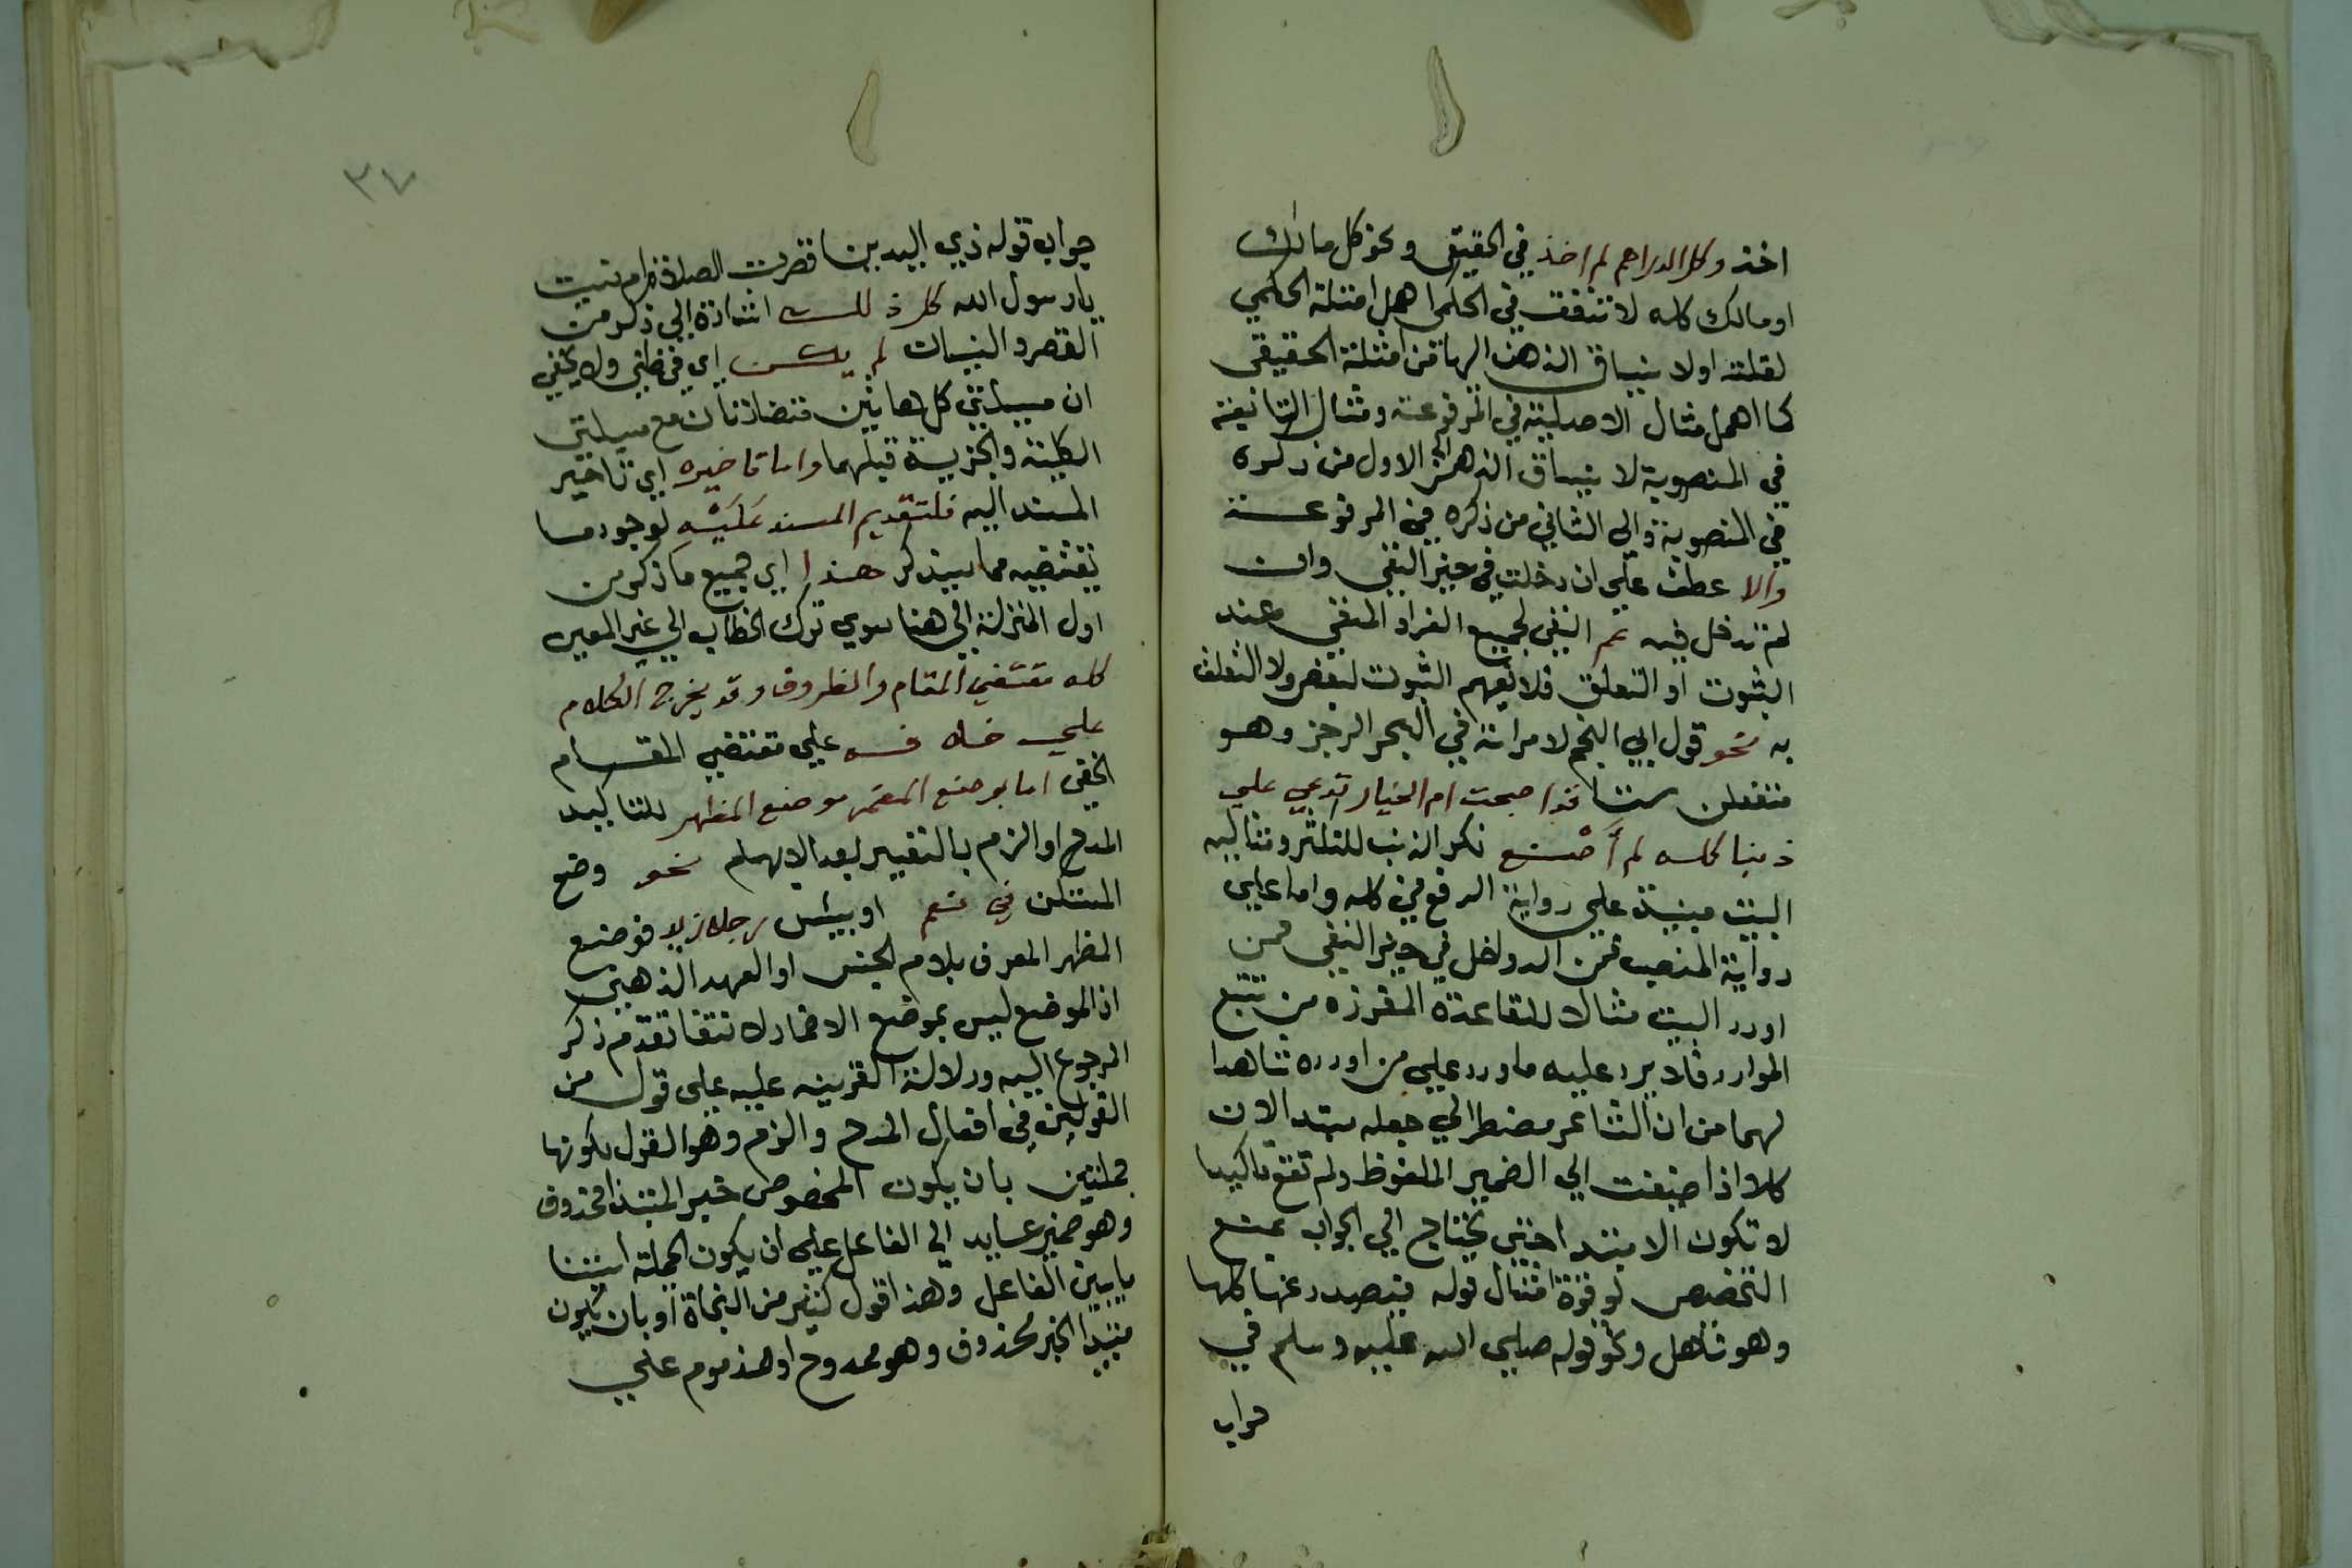 اخذ وكل الدراهم لم اخذ في الحقيقي ونحو كل مالك
او مالك كله لا تنفق في الحكمي اهمل امثلة الحكمي
لقلته اولا ينساق الذهن اليها من امثلة الحقيقي
كما اهمل مثال الاصلية في المرفوعة ومثال التابعية
في المنصوبة لا ينساق الذهن الى الاول من ذكره
في المنصوبة والي الثاني من ذكره في المرفوعة
والا عطف علي ان دخلت في حيز النفي وان
لم تدخل فيه عم النفي لجميع افراد المنفي عند
الثبوت او التعلق فلا يفهم الثبوت لبعض ولا التعلق
به نحو قول ابي النجم لامراته في البحر الرجز وهو
مستفعلن ستا قد اصبحت ام الخيار تدعي علي
ذنبا كله لم أصنع نكر الذنب للتكثر ومثاليه
البيت مبنية علي رواية الرفع في كله واما علي
رواية النصب فمن الدواخل في حيز النفي فمن
اورد البيت مثالا للقاعدة المقررة من تتبع
الموارد فلا يرد عليه ما ورد علي من اورده شاهدا
لهما من ان الشاعر مضطر الي جعله مبتدا لان
كلا اذا اضيفت الي الضمير الملفوظ ولم تقع تاكيدا
لا تكون الا مبتدا حتي يحتاج الي الجواب بمنع
التخصيص لوقوع امثال قوله فيصدر عنها كلها
وهو ناهل ونحو قوله صلي الله عليه وسلم في
جواب
٣٧
جواب قوله ذي اليدين اقصرت الصلاة ام نسيت
يا رسول الله كل ذلك اشارة الي ذكر من
القصر والنسيان لم يكن اي في ظني ولا يخفي
ان مسيلتي كل هاتين متضادتان مع مسيلتي
الكلية والجزيية قبلهما واما تاخيره اي تاخير
المسند اليه فلتقديم المسند عَلَيْه لوجود ما
يقتضيه مما سيذكر هذا اي جميع ما ذكر من
اول المنزلة الي هنا سوي ترك الخطاب الي غير المعين
كله مقتضي المقام والظروف وقد يخرج الكلام
علي خلافه علي مقتضي المقام
الخفي اما بوضع المضمر موضع المظهر للتاكيد
المدح او الذم بالتفسير بعد الابهام نحو وضع
المستكن في نعم او بيئس رجلا زيد فوضع
المظهر المعرف بلام الجنس او العهد الذهني
اذ الموضع ليس بموضع الاضمار لانتفا تقدم ذكر
الرجوع اليه ودلالة القرينه عليه علي قول من
القولين في افعال المدح والذم وهو القول بكونها
جملتين بان يكون المخصوص خبر المبتدا محذوف
وهو ضمير عايد الي الفاعل علي ان يكون الجملة استينا
يا بين الفاعل وهذا قول كثير من النحاة او بان يكون
مبتدا الخبر محذوف وهو ممدوح او مذموم علي